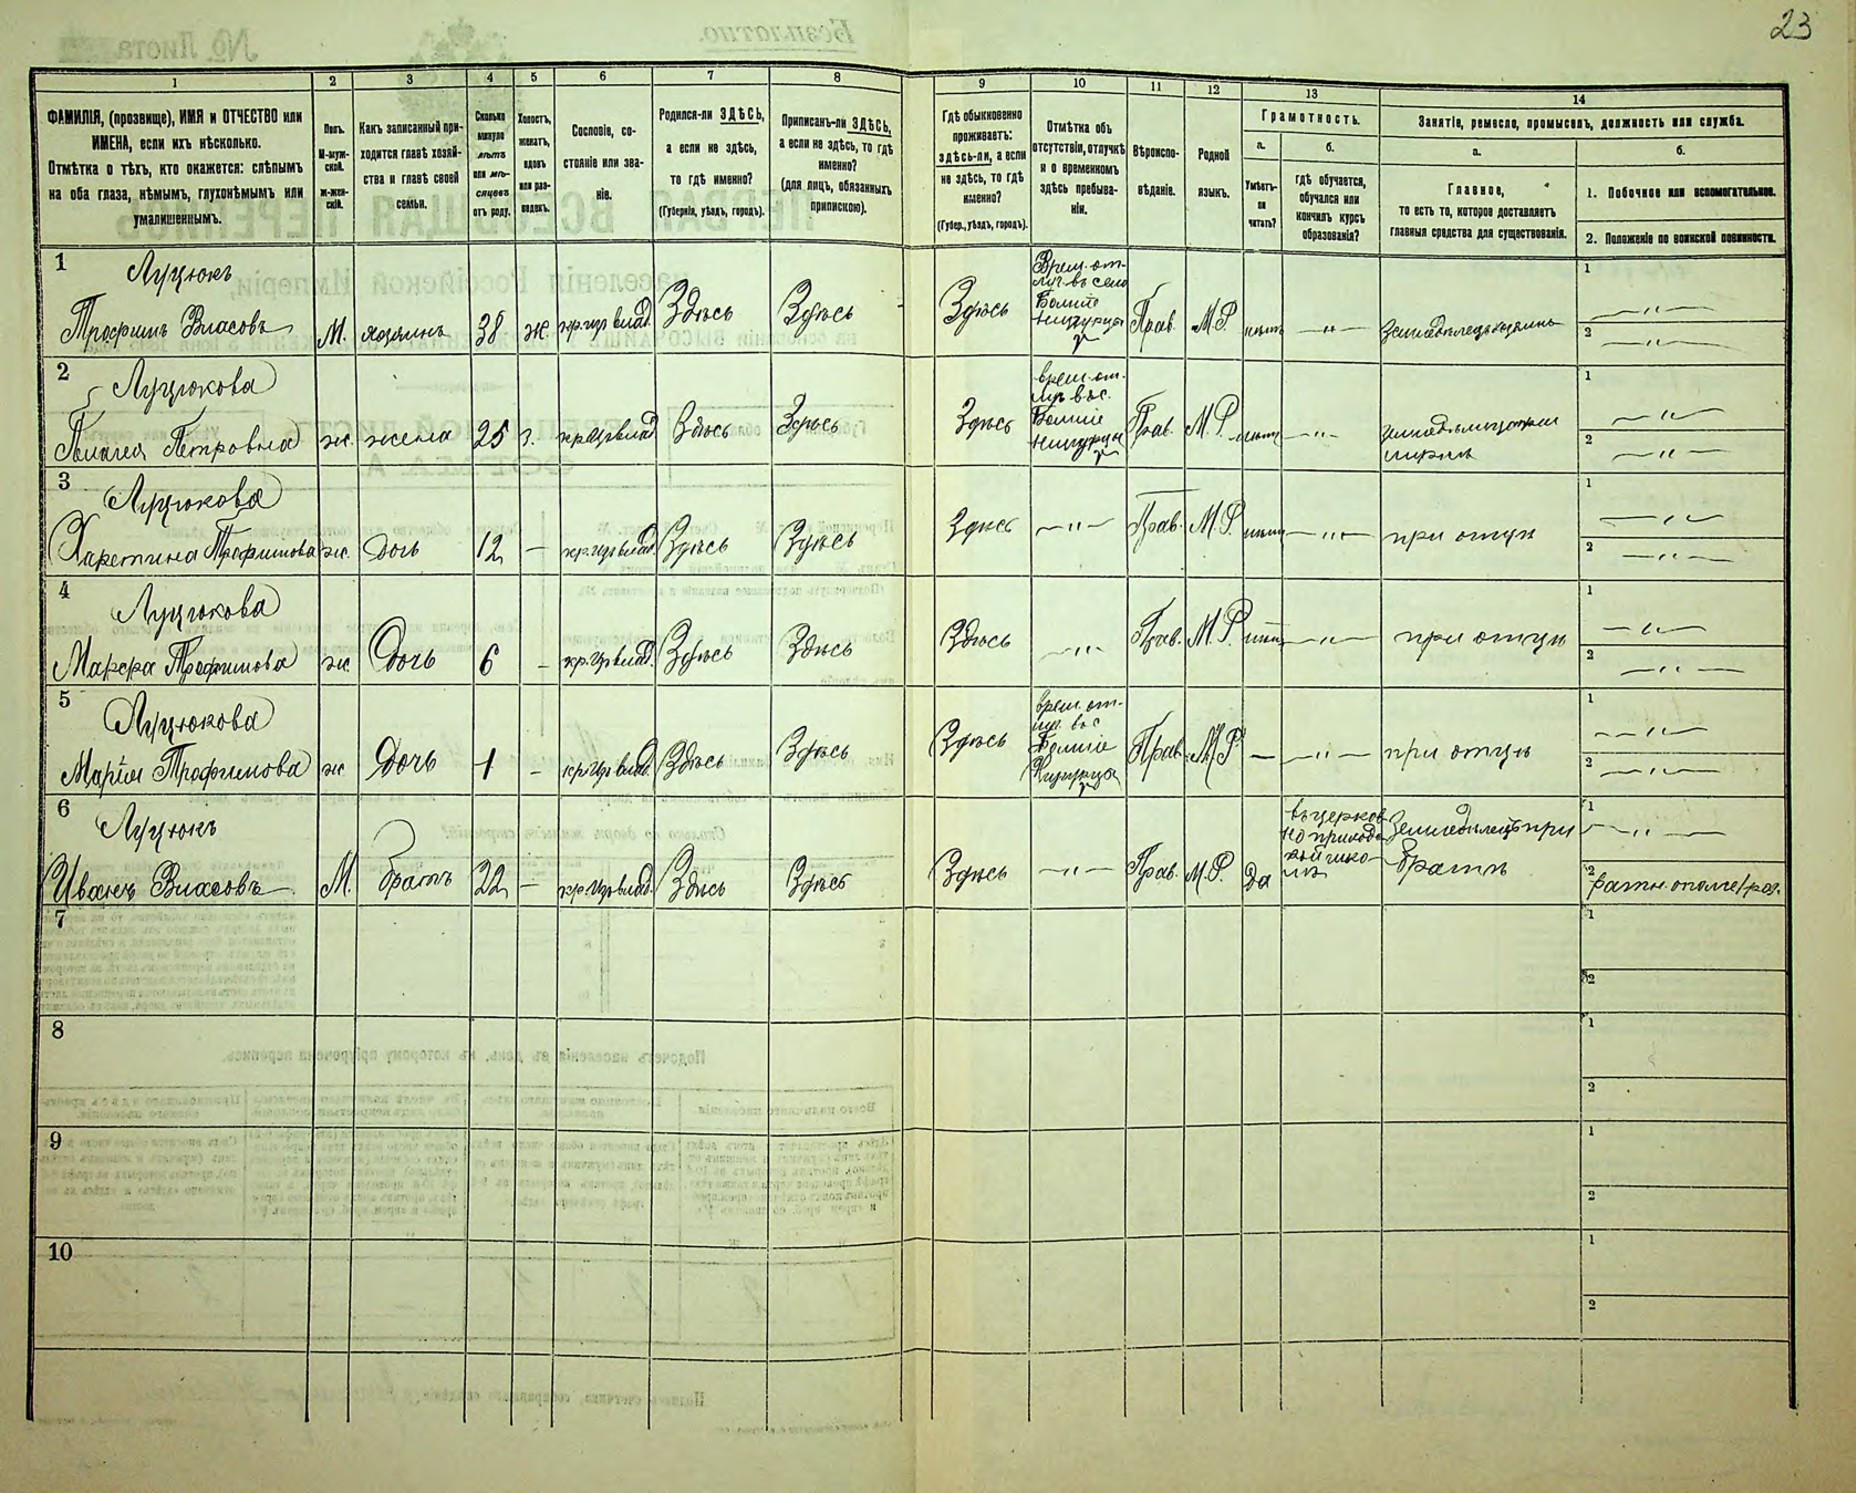 23
1 2 3 4 5 6 7 8 9 10 11 12 13 14
ФАМИЛІЯ, (прозвище), ИМЯ и ОТЧЕСТВО или
ИМЕНА, если ихъ нѣсколько.
Отмѣтка о тѣхъ, кто окажется: слѣпымъ
на оба глаза, нѣмымъ, глухонѣмымъ или
умалишеннымъ.
Полъ.
М-муж-
ской.
Ж-жен-
скій.
Какъ записанный при-
ходится главѣ хозяй-
ства и главѣ своей
семьи.
Сколько
минуло
лѣтъ
или мѣ-
сяцевъ
отъ роду.
Холостъ,
женатъ,
вдовъ
или раз-
веденъ.
Сословіе, со-
стояніе или зва-
ніе.
Родился-ли ЗДѢСЬ,
а если не здѣсь,
то гдѣ именно?
(Губернія, уѣздъ, городъ).
Приписанъ-ли ЗДѢСЬ,
а если не здѣсь, то гдѣ
именно?
(для лицъ, обязанныхъ
припискою).
Гдѣ обыкновенно
проживаетъ:
здѣсь-ли, а если
не здѣсь, то гдѣ
именно?
(Губер., уѣздъ, городъ).
Отмѣтка объ
отсутствіи, отлучкѣ
и о временномъ
здѣсь пребыва-
ніи.
Вѣроиспо-
вѣданіе.
Родной
языкъ.
Грамотность.
а.
Умѣетъ-
ли
читать?
б.
гдѣ обучается,
обучался или
кончилъ курсъ
образованія?
Занятіе, ремесло, промыселъ, должность или служба.
а.
Главное,
то есть то, которое доставляетъ
главныя средства для существованія.
б.
1. Побочное или вспомогательное.
2. Положеніе по воинской повинности.
1
Луцюкъ
Трофимъ Власовъ М. хозяинъ 38 ж. кр. изъ влад. Здѣсь Здѣсь Здѣсь
Врем. от-
луч. въ село
Большіе
Прав. М.Р. нѣтъ —"— Земледѣлецъ хозяинъ
1 —"—
2 —"—
2
Луцюкова
Петровна ж. жена 25 з. кр. изъ влад. Здѣсь Здѣсь Здѣсь
врем. от-
луч. въ с.
Большіе
Прав. М.Р. нѣтъ —"—
1 —"—
2 —"—
3
Луцюкова
Харетина Трофимова ж. дочь 12 — кр. изъ влад. Здѣсь Здѣсь Здѣсь —"— Прав. М.Р. нѣтъ —"— при отцѣ
1 —"—
2 —"—
4
Луцюкова
Марфа Трофимова ж. Дочь 6 — кр. изъ влад. Здѣсь Здѣсь Здѣсь —"— Прав. М.Р. нѣтъ —"— при отцѣ
1 —"—
2 —"—
5
Луцюкова
Марія Трофимова ж Дочь 1 — кр. изъ влад. Здѣсь Здѣсь Здѣсь
врем. от-
луч. въ с
Большіе
Прав. М.Р. — —"— при отцѣ
1 —"—
2 —"—
6
Луцюкъ
Иванъ Власовъ М. братъ 22 — кр. изъ влад. Здѣсь Здѣсь Здѣсь —"— Прав. М.Р. да
въ церков
но приход
ской шко-
лѣ
Земледѣлецъ при
братѣ
1 —"—
2 ратн. ополч. 1 раз.
7
1
2
8
1
2
9
1
2
10
1
2